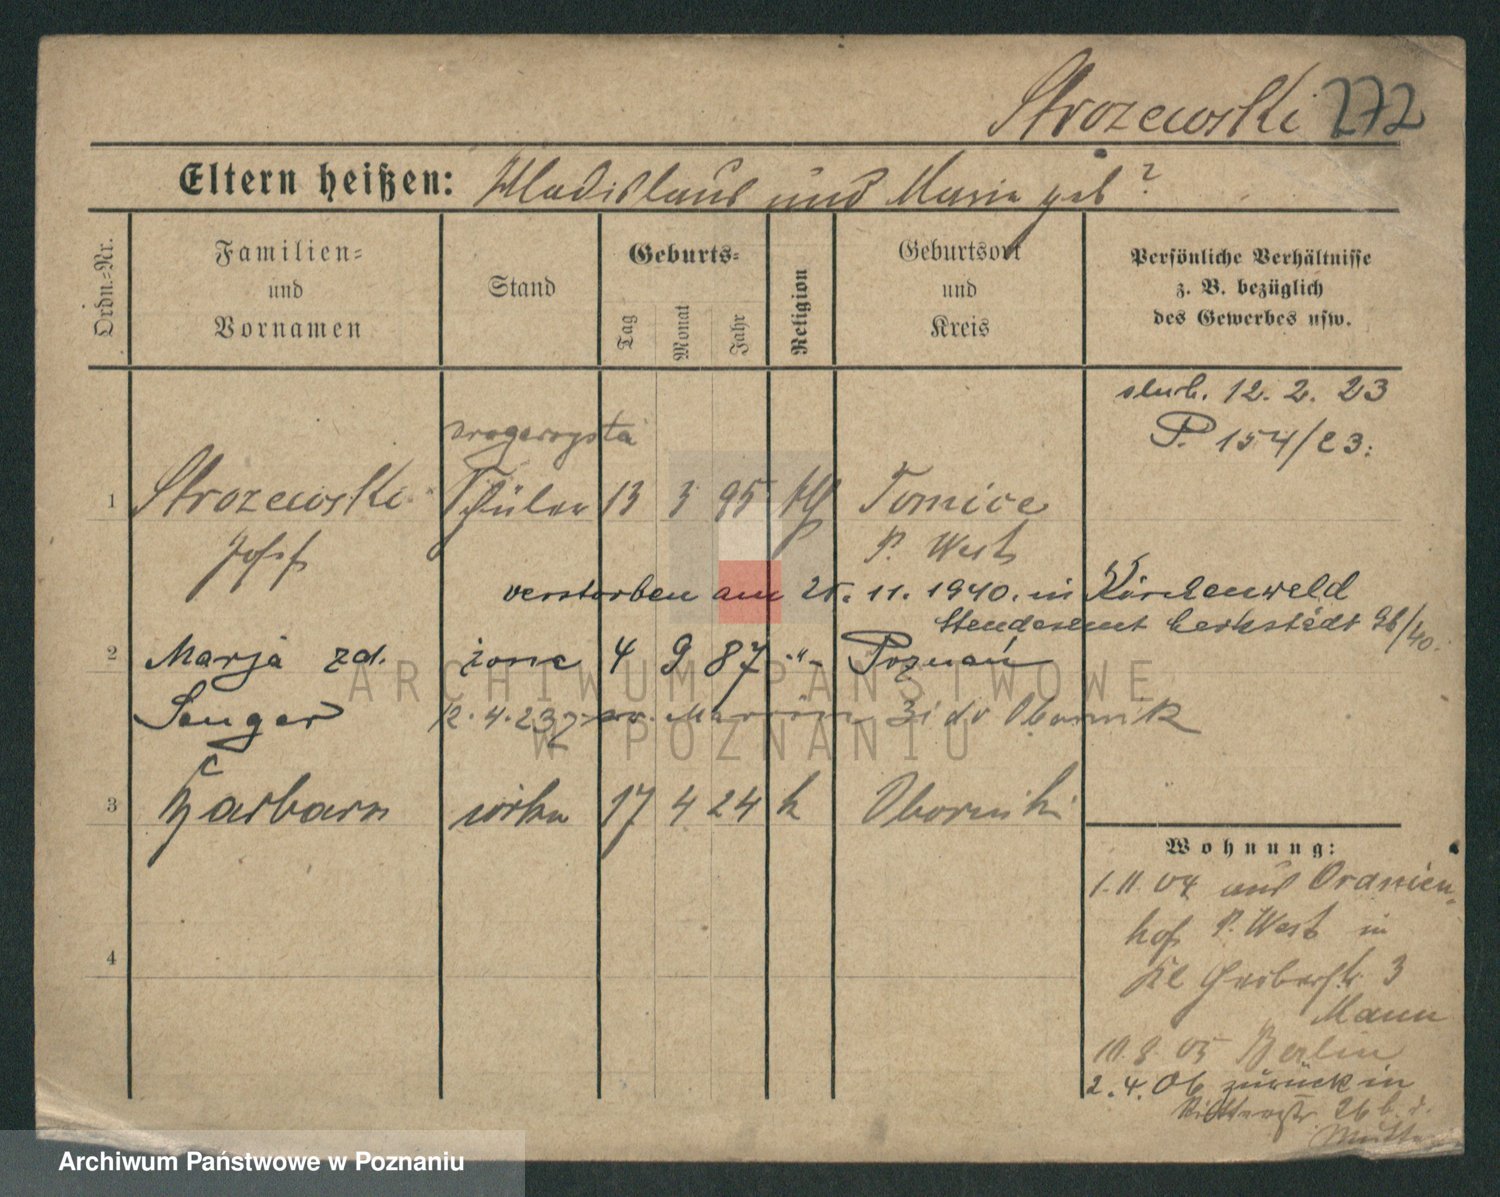 Strozewski 272
Eltern heißen: Wladislaus und Marie geb ?
Ordn.=Nr.
Familien=
und
Vornamen
Stand
Geburts=
Tag
Monat
Jahr
Religion
Geburtsort
und
Kreis
Persönliche Verhältnisse
z. B. bezüglich
des Gewerbes usw.
slub. 12. 2. 23
P. 154/23.
drogerzysta
1 Strozewski Schüler 13 3 95 kth Tomice
Josef P. West
verstorben am 25. 11. 1940. in
Standesamt 96/40.
2 Marja zd. żona 4 9 87 -"- Poznań
Senger 12. 4. 23 Obornik
3 Barbara córka 17 4 24 k Oborniki
4
Wohnung:
1. 11. 04 aus Oranien=
hof P. West in
Kl Gerberstr 3
Mann
10. 8. 05 Berlin
2. 4. 06 zurück in
26 b. d.
Mutter
ARCHIWUM PAŃSTWOWE
W POZNANIU
Archiwum Państwowe w Poznaniu